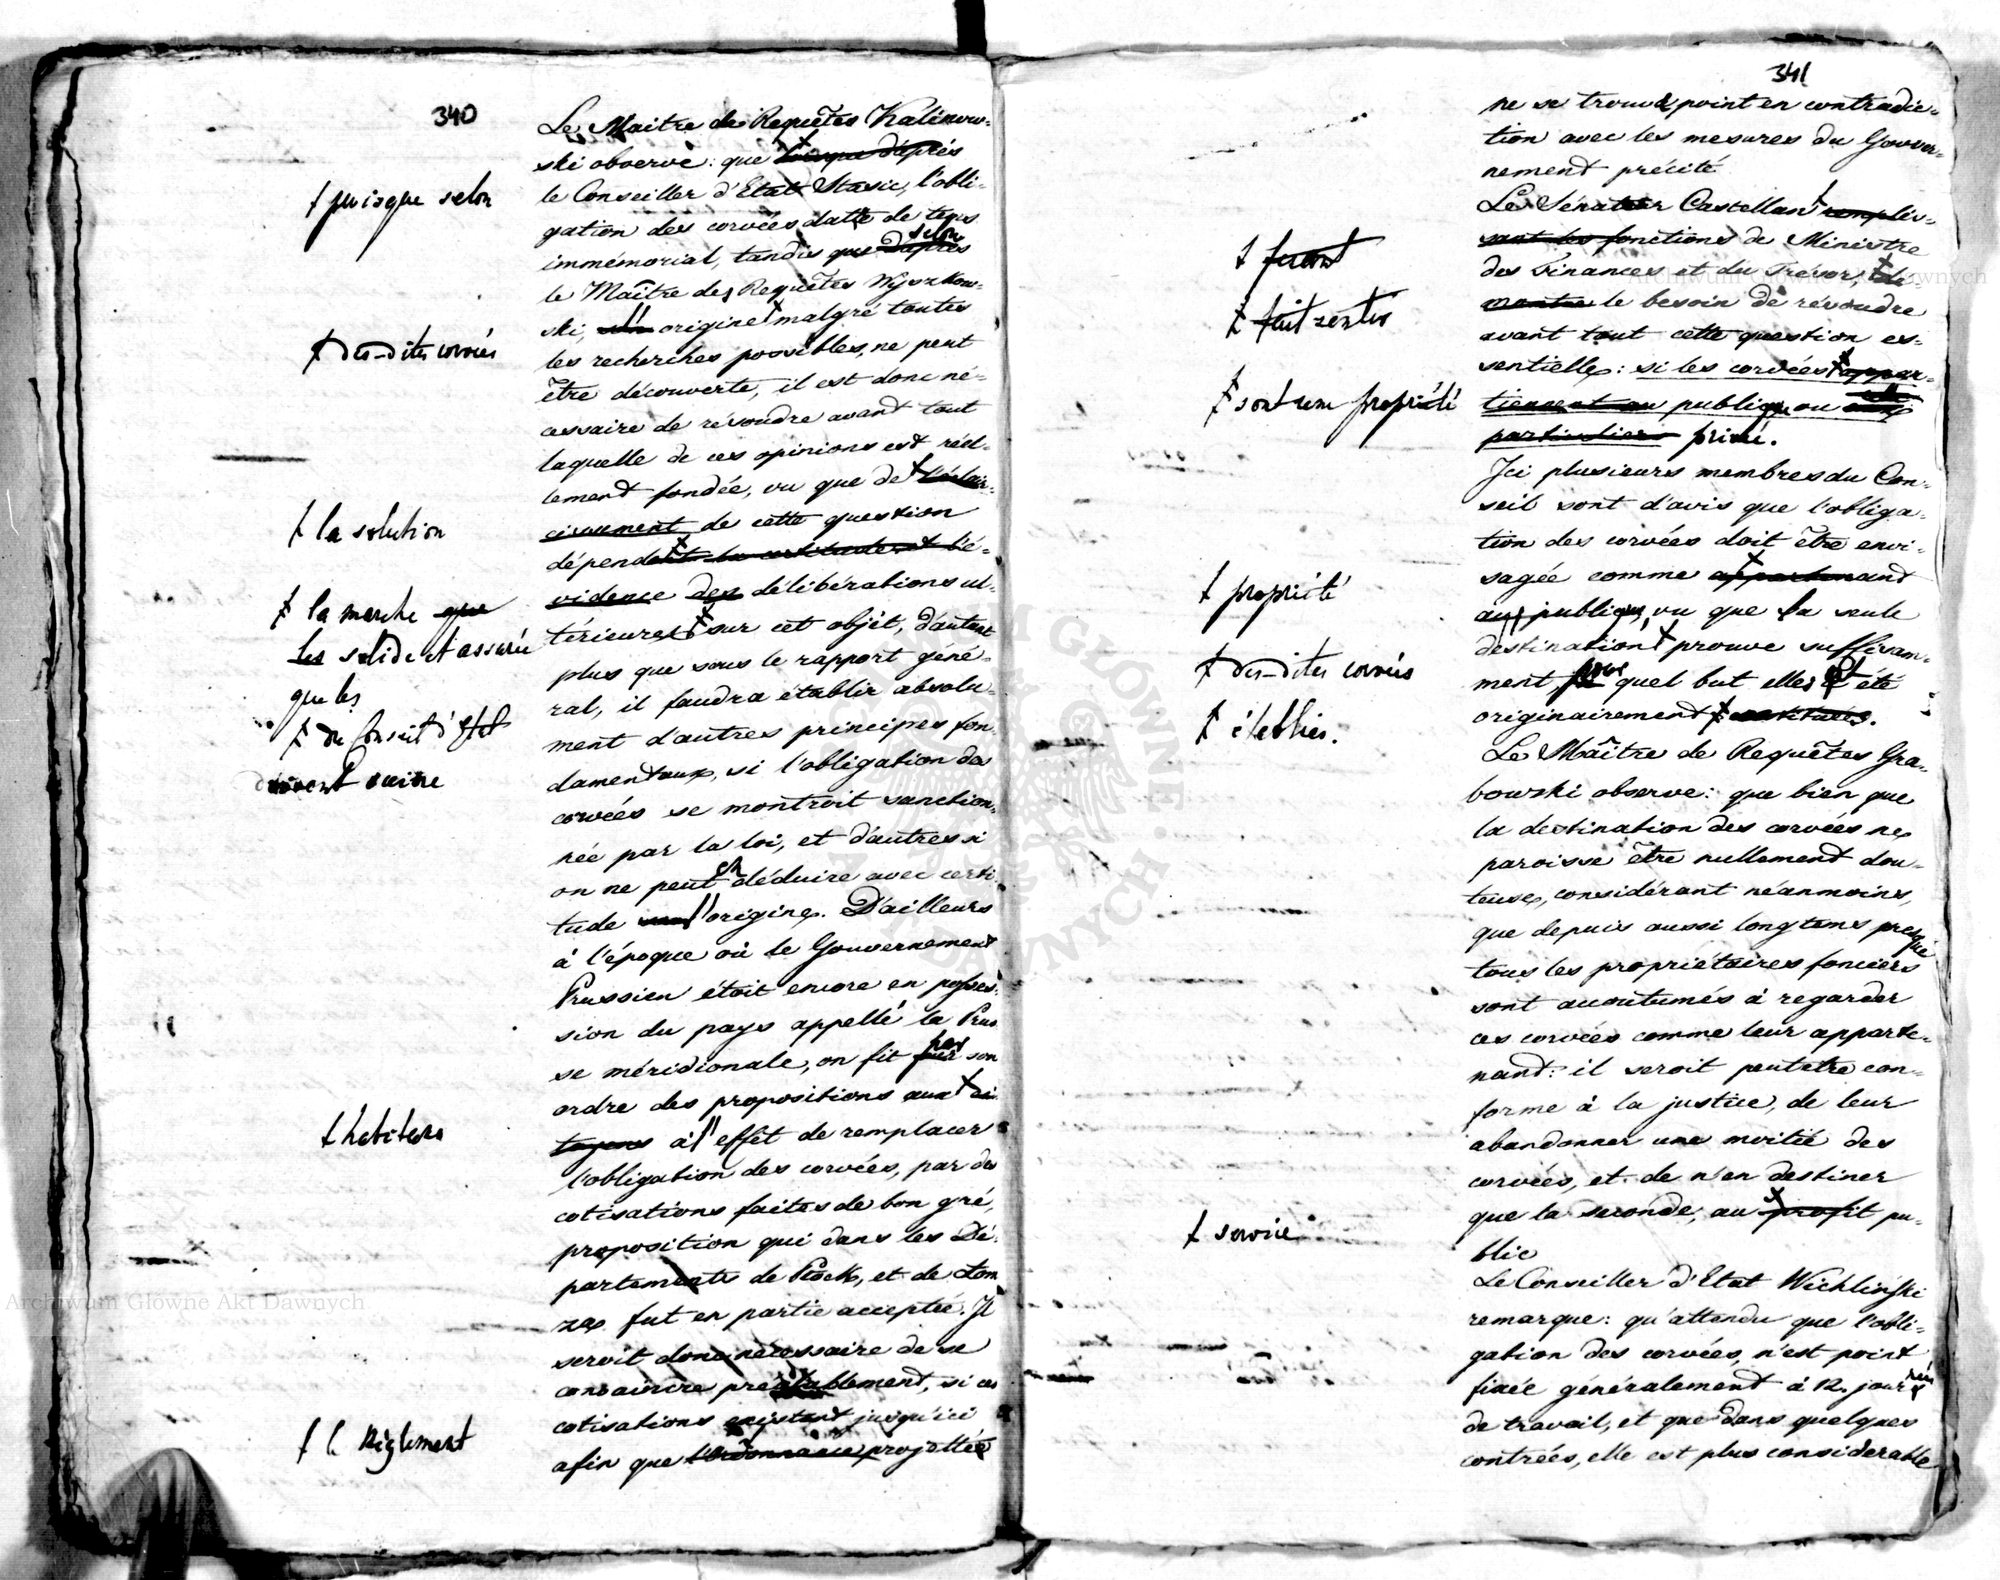 340
Le Maitre des Requêtes Kalinow-
ski observe: que lorsque d'après
† puisque selon
le Conseiller d'Etat Stasic, l'obli-
gation des corvées datte de tems
immémorial, tandis que d'après selon
le Maître des Requêtes Wyszkow-
ski, l'origine † malgré toutes
† des-dites corvées
les recherches possibles, ne peut
être découverte, il est donc né-
cessaire de résoudre avant tout
laquelle de ces opinions est réel-
lement fondée, vu que de † l'éclair-
cissement de cette question
† la solution
dépendent † la certitude et l'é-
vidence des délibérations ul-
† la marche que
les solide et assurée
que les
térieures † sur cet objèt, d'autant
plus que sous le rapport géné-
ral, il faudra établir absolu-
† du Conseil d'Etat
doivent suivre
ment d'autres principes fon-
damentaux, si l'obligation des
corvées se montroit sanction-
née par la loi, et d'autres si
on ne peut en déduire avec certi-
tude l'origine. D'ailleurs
à l'époque où le Gouvernement
Prussien étoit encore en posses-
sion du pays appellé la Prus-
se méridionale, on fit par son
ordre des propositions aux † ci-
toyens à l'effèt de remplacer
† habitans
l'obligation des corvées, par des
cotisations faites de bon gré,
proposition qui dans les Dé-
partements de Plock, et de Lom
za fut en partie acceptée. Il
seroit donc nécessaire de se
convaincre préalablement, si ces
cotisations existent jusqu'ici
afin que l'Ordonnance projettée
† le Règlement
341
ne se trouve point en contradic-
tion avec les mesures du Gouver-
nement précité
Le Sénateur Castellan † remplis-
sant les fonctions de Ministre
† des Finances et du Trésor, † dé-
montre le besoin de résoudre
† fait sentir
avant tout cette question es-
sentielle: si les corvées † appar-
† sont une propriété
tiennent au publique ou aux
particuliers privé.
Ici plusieurs membres du Con-
seil sont d'avis que l'obliga-
tion des corvées doit être envi-
sagée comme † appartenant
† propriété
au publique, vu que la seule
destination † prouve suffisam-
† des-dites corvées
ment pour quel but elles ont été
originairement † constituées.
† établies.
Le Maître de Requêtes Gra-
bowski observe: que bien que
la destination des corvées ne
paroisse être nullement dou-
teuse, considérant néanmoins,
que depuis aussi longtems presque
tous les propriétaires fonciers
sont accoutumés à regarder
ces corvées comme leur apparte-
nant: il seroit peutetre con-
forme à la justice, de leur
abandonner une moitié des
corvées, et de n'en destiner
que la seconde, au † profit pu-
† service
blic
Le Conseiller d'Etat Wichliński
remarque: qu'attendu que l'obli-
gation des corvées, n'est point
fixée généralement à 12. journées
de travail, et que dans quelques
contrées, elle est plus considerable
Archiwum Główne Akt Dawnych